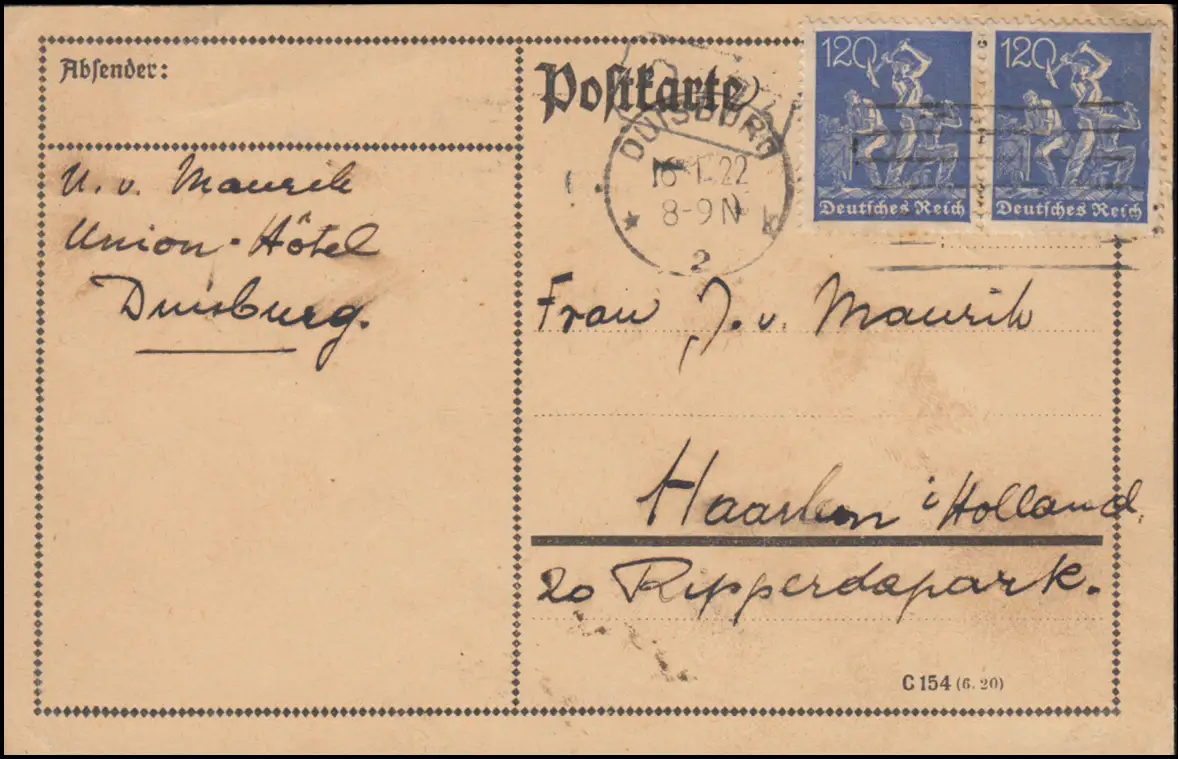 Absender:
U. v. Maurik
Union-Hôtel
Duisburg.
Postkarte
DUISBURG
16.1.22
8-9N
* 2 k
120
120
Deutsches Reich
Deutsches Reich
Frau J. v. Maurik
Haarlem i/Holland.
20 Ripperdapark.
C 154 (6. 20)